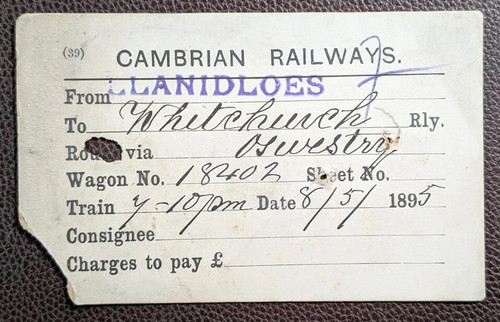 (39) CAMBRIAN RAILWAYS.
From LLANIDLOES
To Whitchurch Rly.
Route via Oswestry
Wagon No. 18402 Sheet No.
Train 7-10pm Date 8/5/1895
Consignee
Charges to pay £